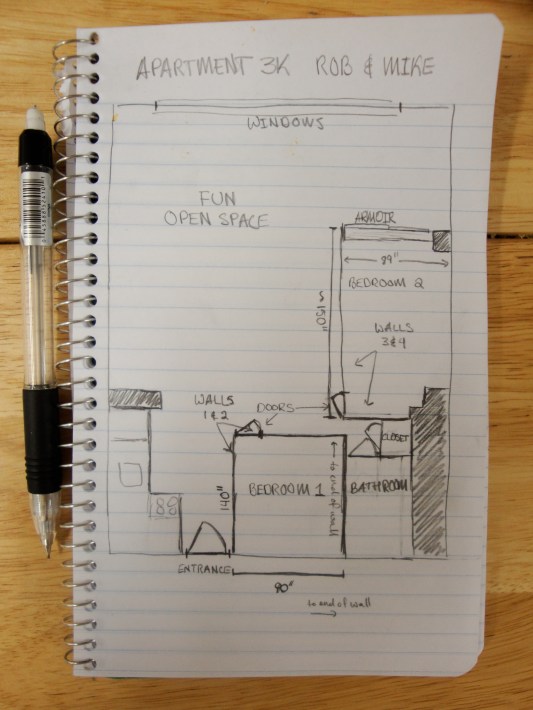 APARTMENT 3K ROB & MIKE
WINDOWS
FUN
OPEN SPACE
ARMOIR
89"
BEDROOM 2
~150"
WALLS
3&4
WALLS
1&2
DOORS
CLOSET
140"
BEDROOM 1
to end of wall
BATHROOM
ENTRANCE
90"
to end of wall